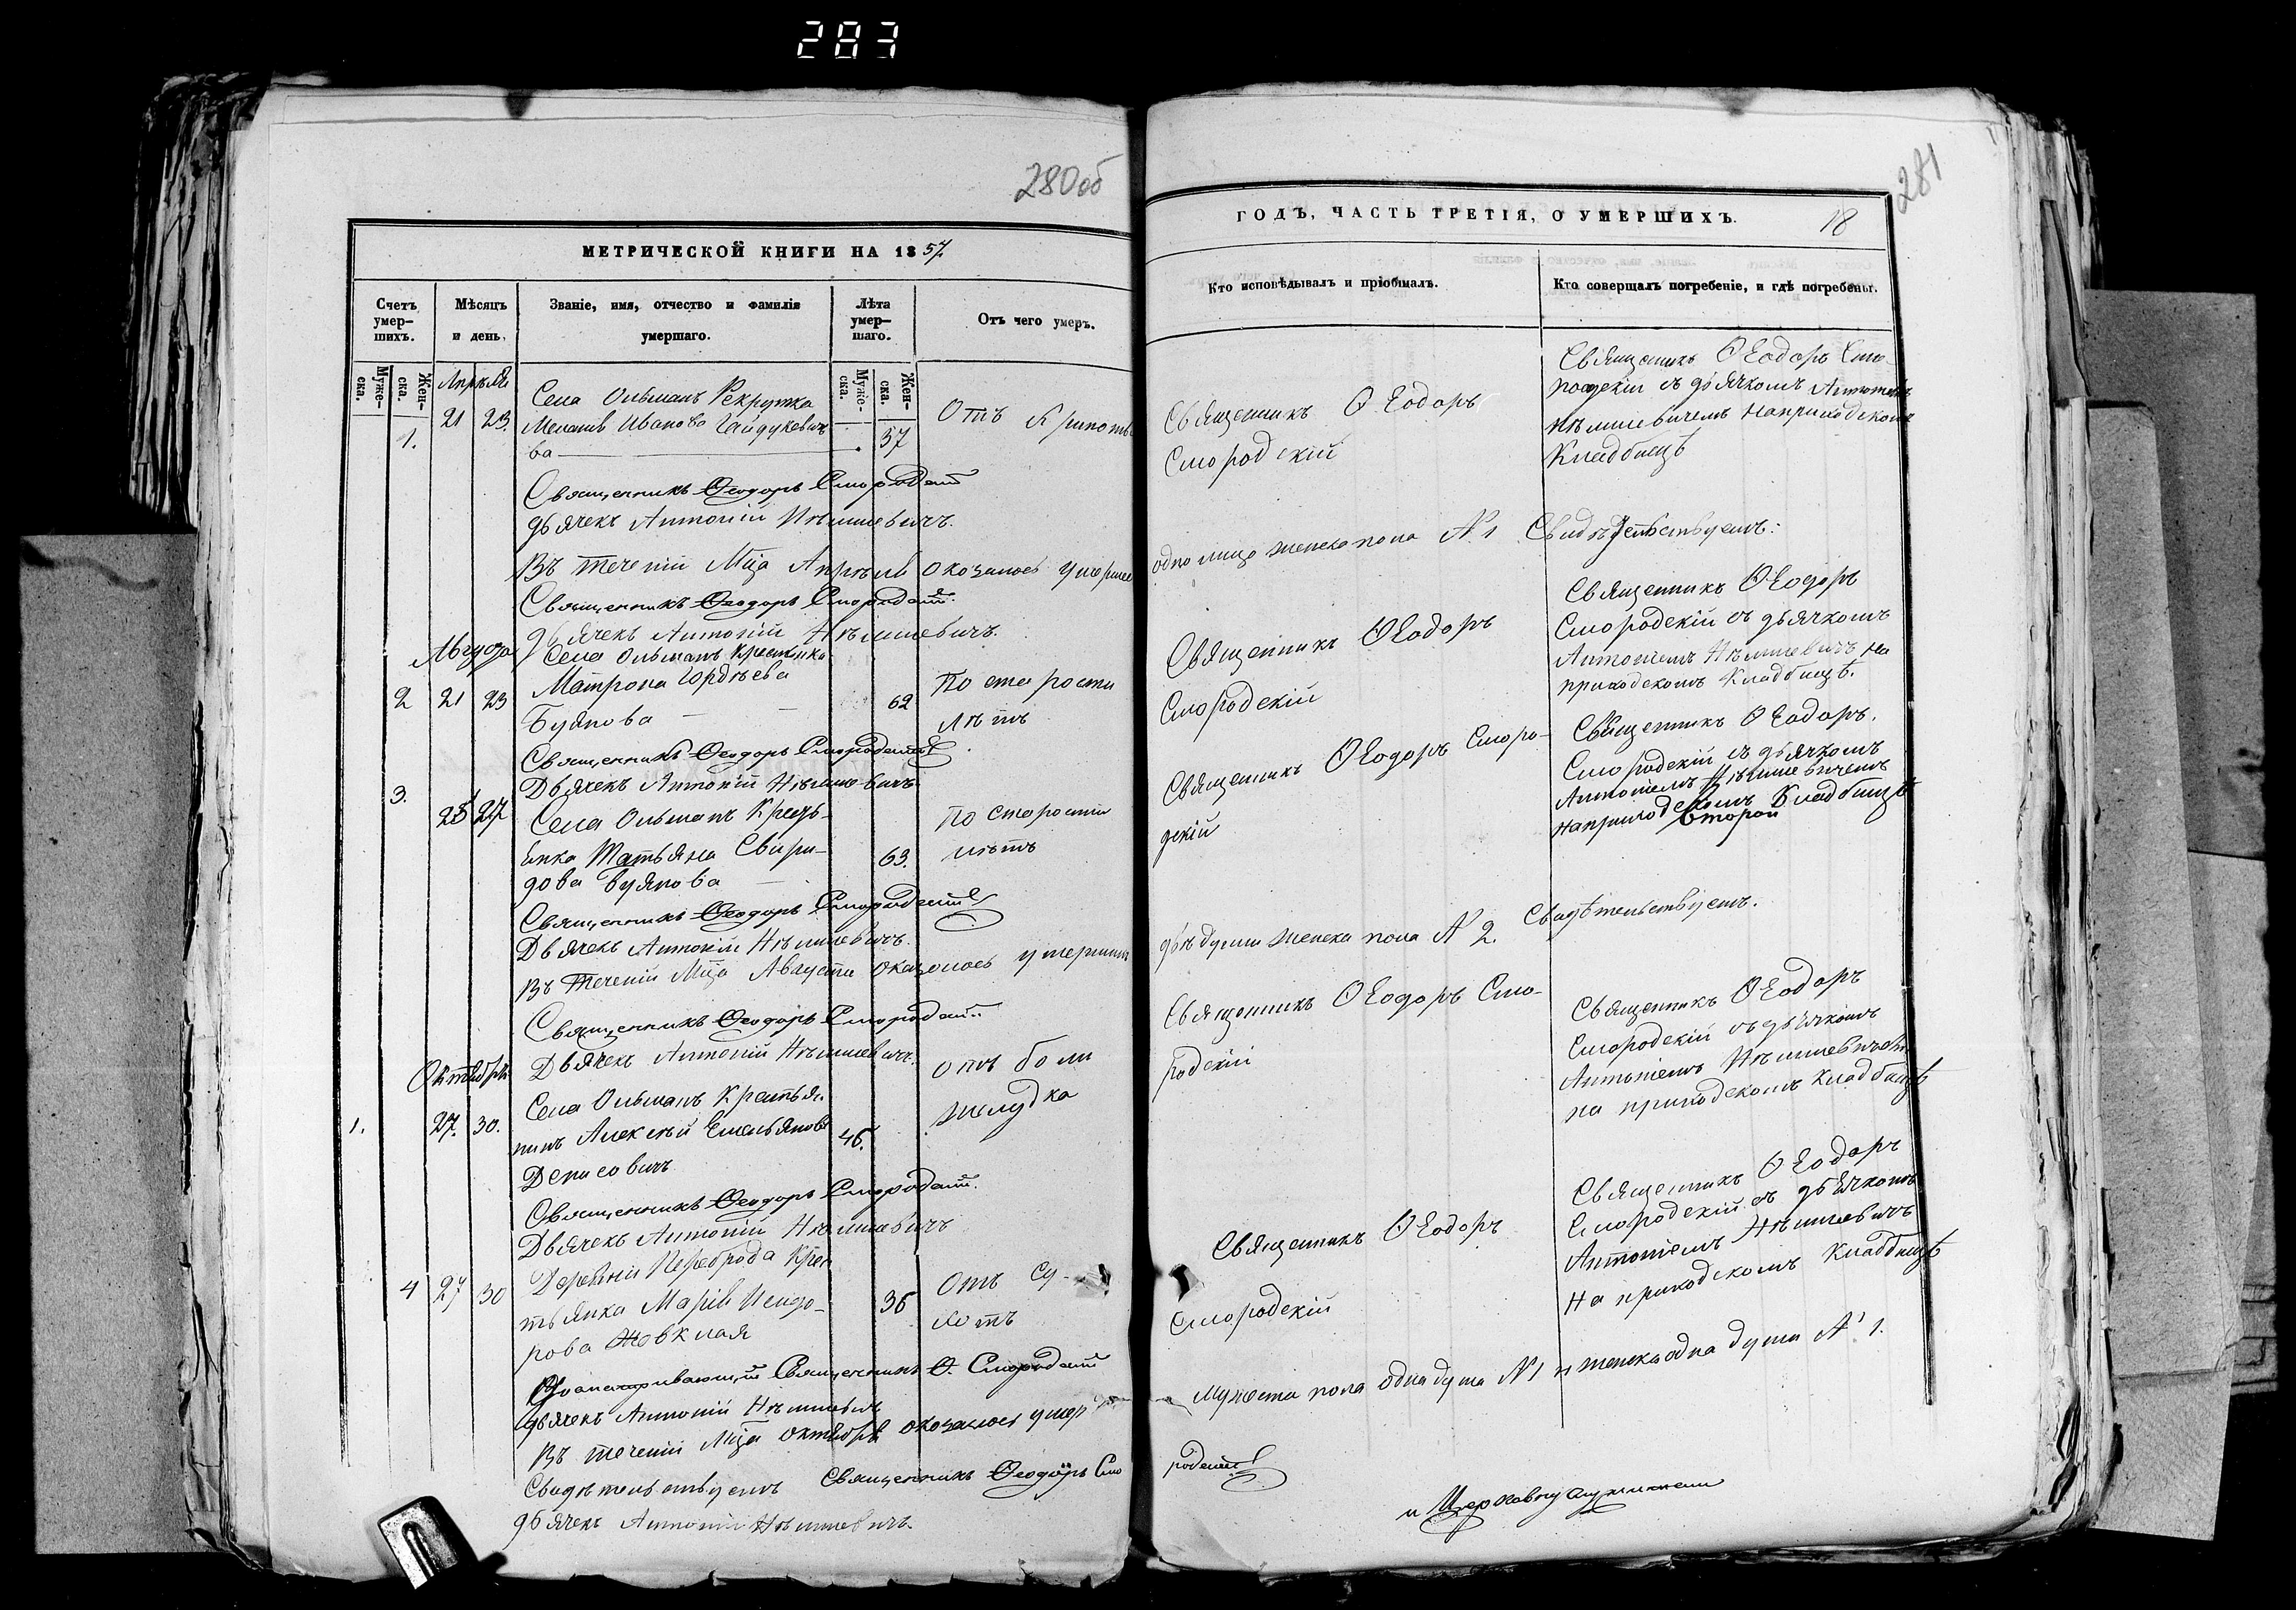 283
280об
МЕТРИЧЕСКОЙ КНИГИ НА 1857
Счетъ умер-шихъ.
Мѣсяцъ и день.
Званіе, имя, отчество и фамилія умершаго.
Лѣта умер-шаго.
Отъ чего умеръ.
Муже-ска.
Жен-ска.
Муже-ска.
Жен-ска.
Апрѣля
Села Ольманъ Рекрутка
1. 21 23. Меланія Иванова Гайдукевич 57 Отъ
ва
Священникъ Ѳеодоръ Смородскій
дьячекъ Антоній Нѣмшевичъ.
Въ теченіи Мца Апрѣля оказалось умершее
Священникъ Ѳеодоръ Смородскій
дьячекъ Антоній Нѣмшевичъ.
Августа
Села Ольманъ Крестянка
2 21 23 Матрона Гордѣева 62 По старости
Буянова лѣтъ
Священникъ Ѳеодоръ Смородскій
Дьячекъ Антоній Нѣмшевичъ
3. 25 27 Села Ольманъ Кресть- по старости
янка Татьяна Свири- 63. лѣтъ
дова Буянова
Священникъ Ѳеодоръ Смородскій
Дьячекъ Антоній Нѣмшевичъ.
Въ теченіи Мца Августа оказалось умершихъ
Священникъ Ѳеодоръ Смородскій
Октября Дьячекъ Антоній Нѣмшевичъ. отъ боли
Села Ольманъ Крестья- желудка
1. 27. 30. нинъ Алексѣй Емельяновъ 45.
Денисовичъ
Священникъ Ѳеодоръ Смородскій.
Дьячекъ Антоній Нѣмшевичъ
Деревни Переброда Крес
4 27 30 тьянка Марія Исидо- 36 Отъ су-
рова Жовклая хотъ
Священникъ Ѳ. Смородскій
дьячекъ Антоній Нѣмшевичъ
Въ теченіи Мца октября оказалось умер
Свидѣтельствуемъ Священникъ Ѳеодоръ Смо
дьячекъ Антоній Нѣмшевичъ.
281
ГОДЪ, ЧАСТЬ ТРЕТІЯ, О УМЕРШИХЪ.
18
Кто исповѣдывалъ и пріобщалъ.
Кто совершалъ погребеніе, и гдѣ погребены.
Священникъ Ѳеодоръ
Смородскій
Священникъ Ѳеодоръ Смо-
родскій съ дьячкомъ Антоніемъ
Нѣмшевичемъ на приходскомъ
Кладбищѣ
одно лицо женска пола № 1 Свидѣтельствуемъ:
Священникъ Ѳеодоръ
Смородскій
Священникъ Ѳеодоръ
Смородскій съ дьячкомъ
Антоніемъ Нѣмшевичъ на
приходскомъ Кладбищѣ.
Священникъ Ѳеодоръ Сморо-
дскій
Священникъ Ѳеодоръ.
Смородскій съ дьячкомъ
Антоніемъ Нѣмшевичемъ
на приходскомъ Кладбищѣ
второй
двѣ души женска пола № 2. Свидѣтельствуемъ.
Священникъ Ѳеодоръ Смо-
родскій
Священникъ Ѳеодоръ
Смородскій съ дьячкомъ
Антоніемъ Нѣмшевичемъ
на приходскомъ Кладбищѣ
Священникъ Ѳеодоръ
Смородскій
Священникъ Ѳеодоръ
Смородскій съ дьячкомъ
Антоніемъ Нѣмшевичъ
На приходскомъ Кладбищѣ
мужеска пола одна душа № 1 и женска одна душа № 1.
родскій
и Церковнослужители